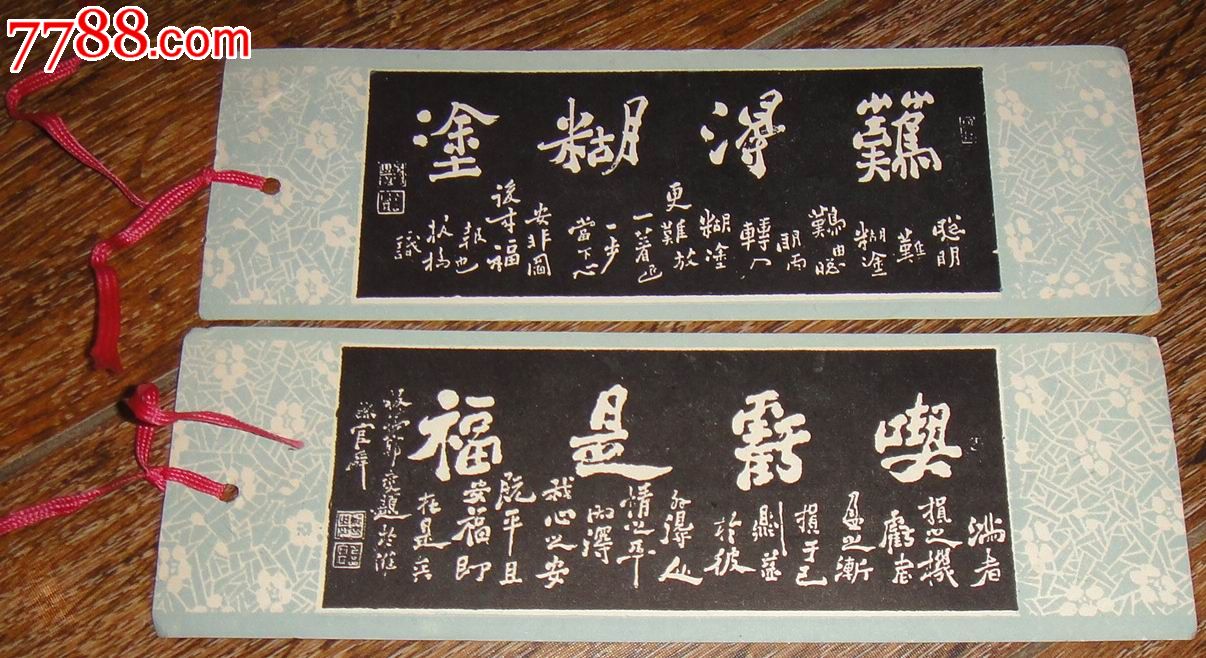 7788.com
難得糊塗
聰明
難
糊塗
難由聰
明而
轉入
糊塗
更難放
一着退
一步
當下心
安非圖
後来福
報也
板橋
識
喫虧是福
滿者
損之機
虧者
盈之漸
損于己
則益
於彼
外得人
情之平
内得
我心之安
既平且
安福即
在是矣
板橋鄭燮題於濰
縣官廨